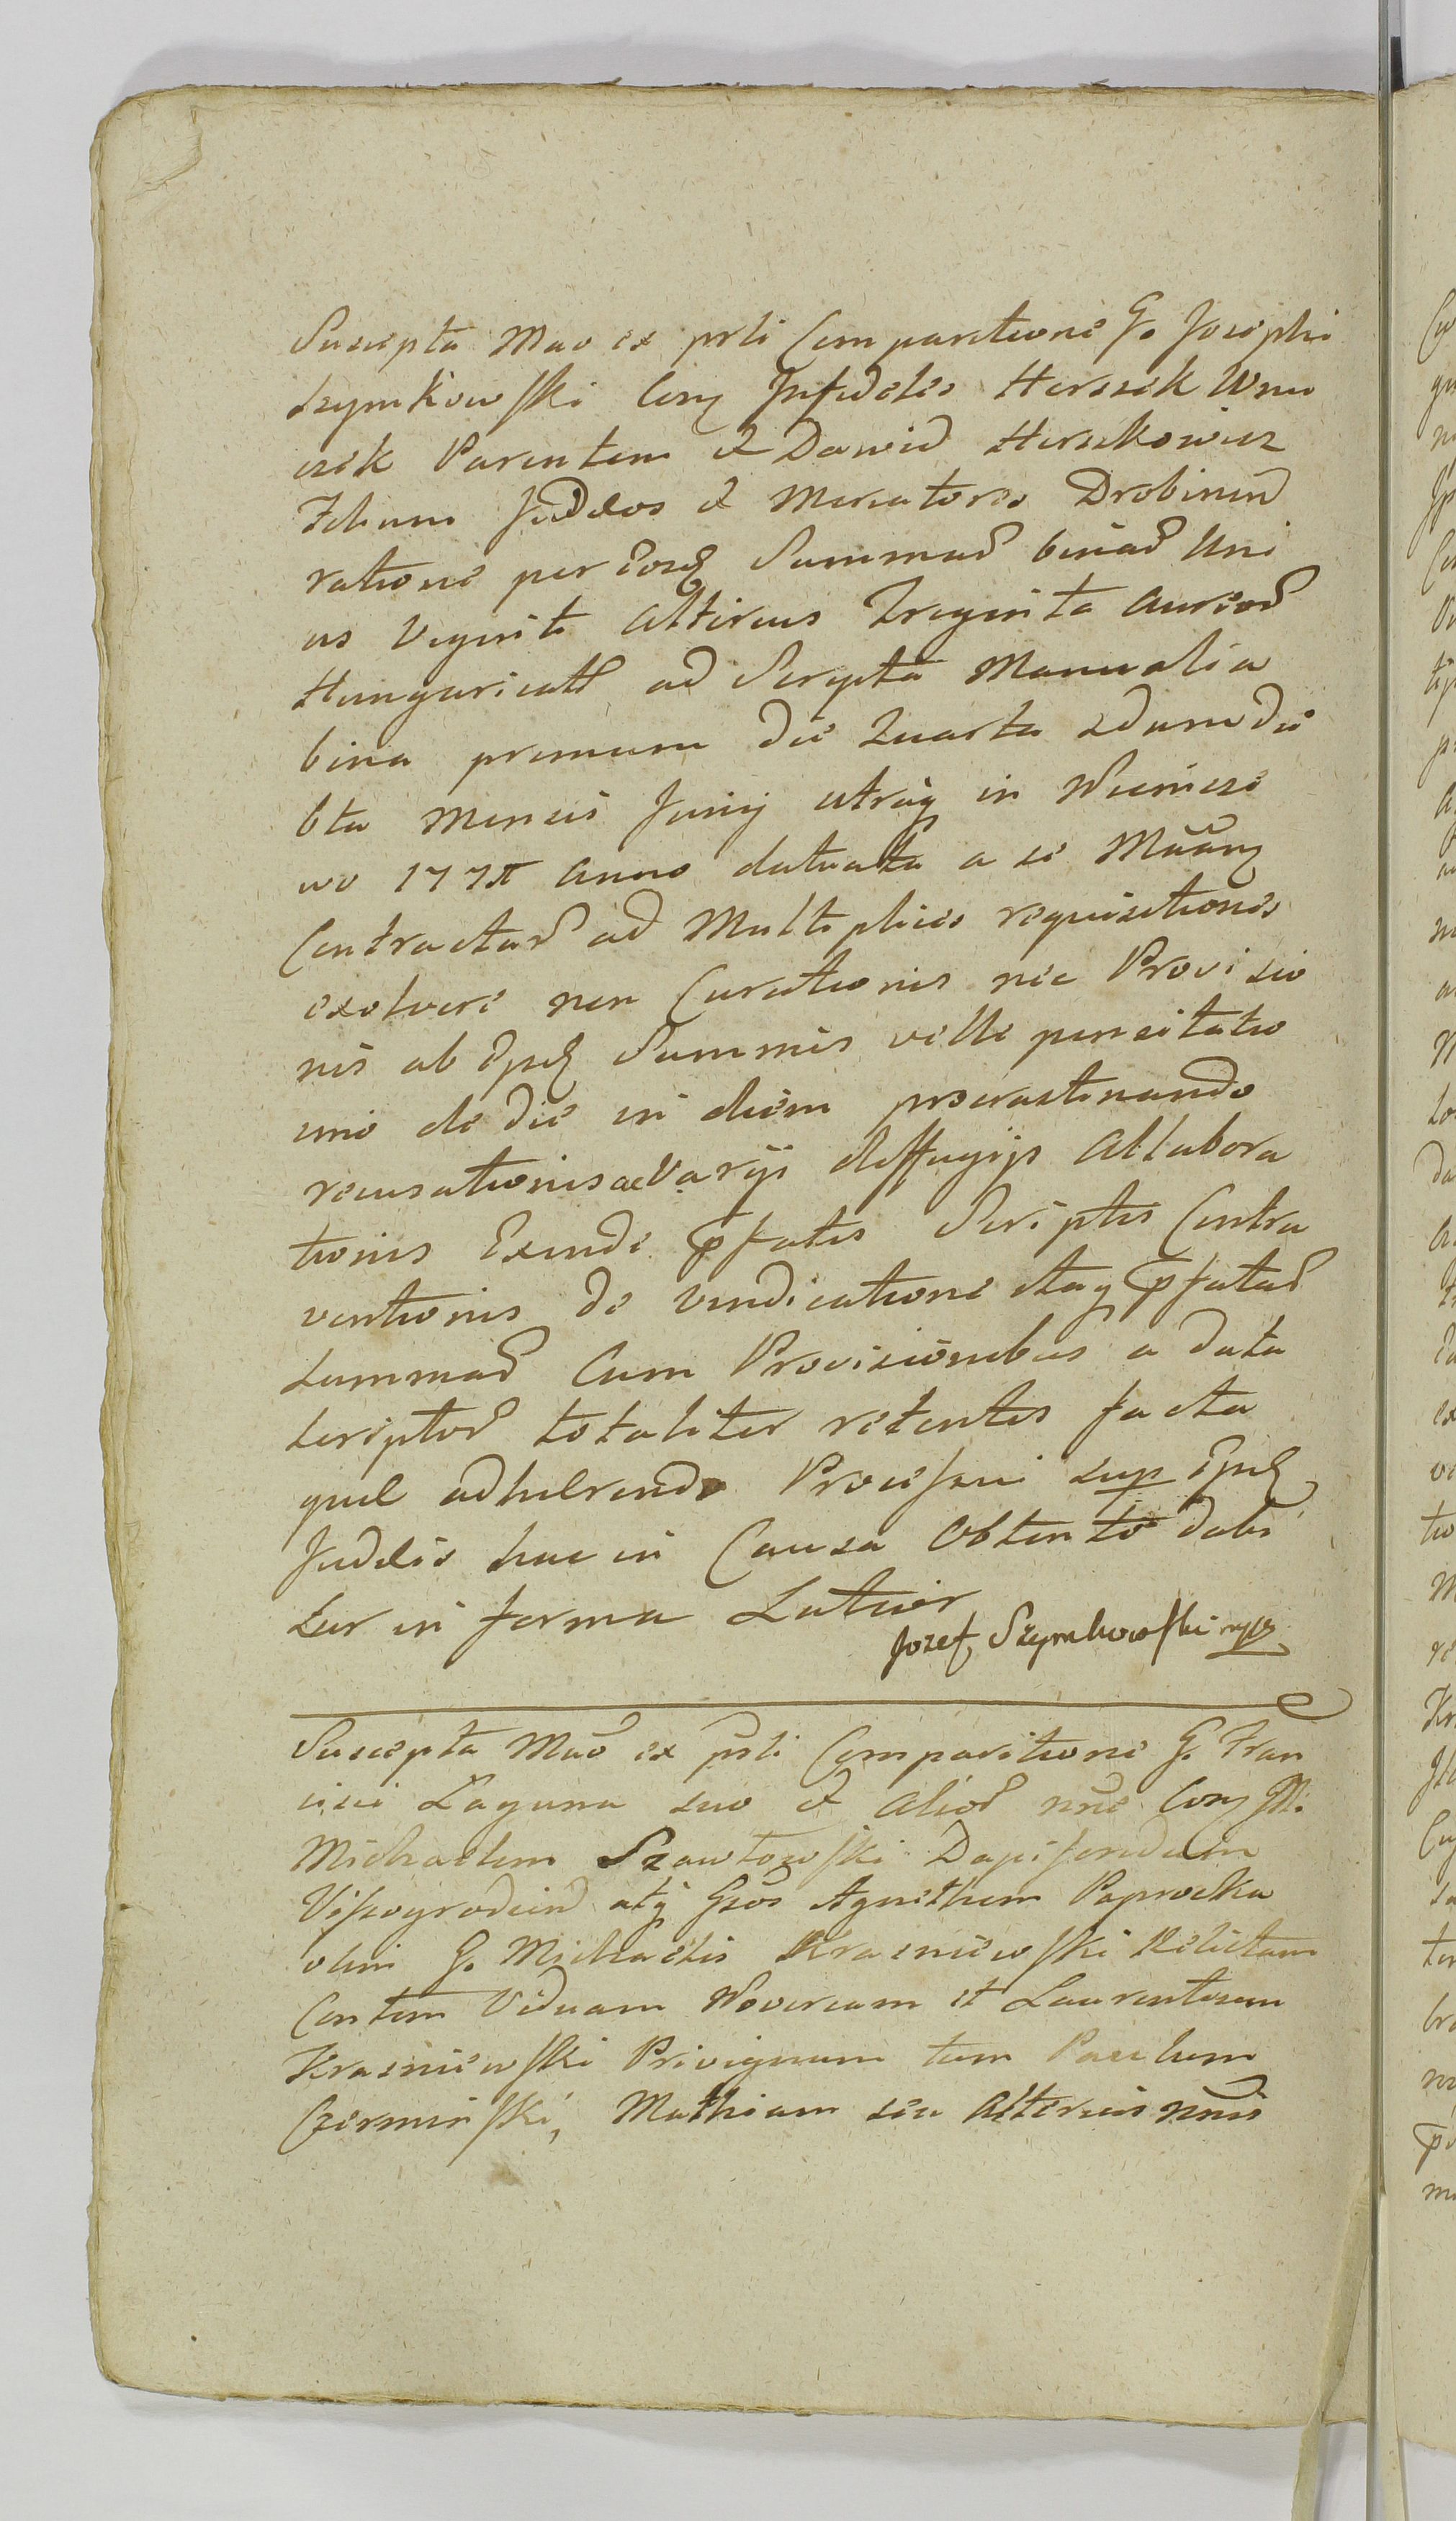 Suscepta Mao ex prti Comparitione G. Josephi
Szymkowski Cory Infideles Herszek Wnu
czek Parentem et Dawid Herszkowicz
Filium Judeos et Mercatores Drobinen
ratione per Eosq Summar binar Uni
us Viginti Alterius Triginta Aureor
Hungaricall ad Scripta Manualia
bina primum die Quarta 2dum die
6ta Mensis Junij utraq in Wiemcze
wo anno datuata a se Māāny
Contractar ad Multiplices requisitiones
exolvere non Curationis nec Provisio
nis ab Ipsq Summis velle pensitatio
nis de die in diem procrastinando
recusationis ac Varijs diffugijs Allabora
tionis Exinde p̄fatis Scriptis Contra
ventionis de Vindicatione itaq p̄fatar
Summar Cum Provisionibus a data
Scriptor totaliter retentis facta
quae adhaerendo Processui sup Ipsq
Judaeis hac in Causa Obtento dabi
tur in forma Latior
Jozef Szymkowski mpp
Suscepta Mao ex prti Comparitione G. Fran
cisci Laguna suo et Alior nne Cory M.
Michaelem Szawłowski Dapiferidem
Vissogrodien atq Gsos Agnethem Paprocka
olim G. Michaelis Krasniewski Relictam
Contem Viduam Novercam et Laurentium
Krasniewski Privignum tum Paulum
Czerminski, Mathiam seu Alterius nnis